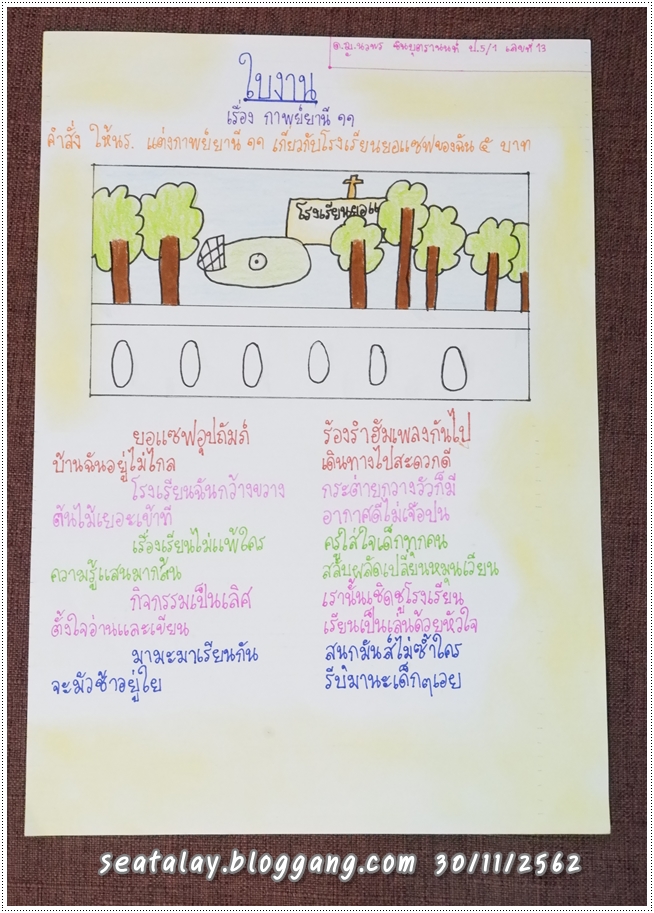 ด.ญ.นวพร ชินบุตรานนท์ ป.5/1 เลขที่ 13
ใบงาน
เรื่อง กาพย์ยานี ๑๑
คำสั่ง ให้นร. แต่งกาพย์ยานี ๑๑ เกี่ยวกับโรงเรียนยอแซฟของฉัน ๕ บาท
โรงเรียนยอแ
ยอแซฟอุปถัมภ์ ร้องรำฮัมเพลงกันไป
บ้านฉันอยู่ไม่ไกล เดินทางไปสะดวกดี
โรงเรียนฉันกว้างขวาง กระต่ายกวางวัวก็มี
ต้นไม้เยอะเข้าที อากาศดีไม่เจือปน
เรื่องเรียนไม่แพ้ใคร ครูใส่ใจเด็กทุกคน
ความรู้แสนมากล้น สลับผลัดเปลี่ยนหมุนเวียน
กิจกรรมเป็นเลิศ เรานั้นเชิดชูโรงเรียน
ตั้งใจอ่านและเขียน เรียนเป็นเล่นด้วยหัวใจ
มามะมาเรียนกัน สนุกมันส์ไม่ซ้ำใคร
จะมัวช้าอยู่ใย รีบมานะเด็กๆเอย
seatalay.bloggang.com 30/11/2562